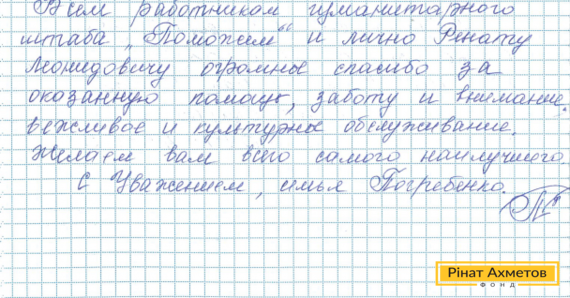 Всем работникам гуманитарного
штаба „Поможем“ и лично Ренату
Леонидовичу огромное спасибо за
оказанную помощь, заботу и внимание,
вежливое и культурное обслуживание.
Желаем вам всего самого наилучшего.
С Уважением, семья Погребенко.
Рінат Ахметов
ФОНД